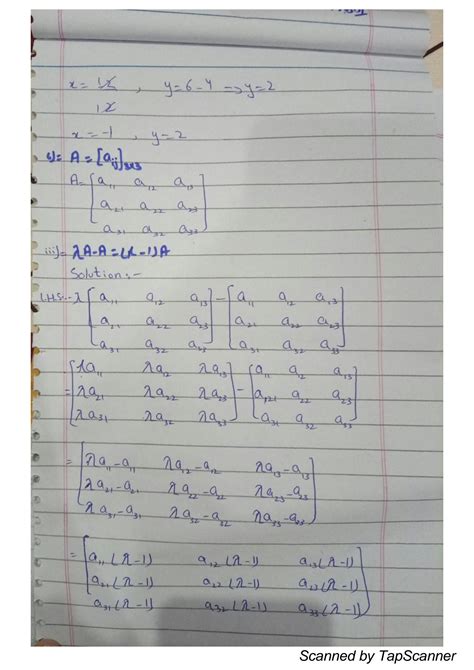 x = 12 , y=6-4 ⇒ y=2
12
x = -1 , y = 2
A = [aij]3x3
A = [a11 a12 a13
a21 a22 a23
a31 a32 a33]
iii)= λA-A = (λ-1)A
Solution:-
LHS:- λ [a11 a12 a13 - [a11 a12 a13
a21 a22 a23 a21 a22 a23
a31 a32 a33] a31 a32 a33]
= [λa11 λa12 λa13 - [a11 a12 a13
λa21 λa22 λa23 a21 a22 a23
λa31 λa32 λa33] a31 a32 a33]
= [λa11-a11 λa12-a12 λa13-a13
λa21-a21 λa22-a22 λa23-a23
λa31-a31 λa32-a32 λa33-a33]
= [a11(λ-1) a12(λ-1) a13(λ-1)
a21(λ-1) a22(λ-1) a23(λ-1)
a31(λ-1) a32(λ-1) a33(λ-1)]
Scanned by TapScanner